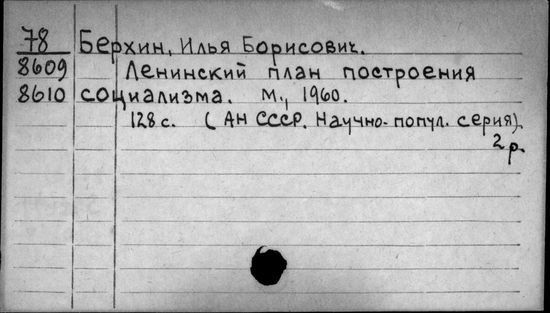 78 Берхин, Илья Борисович.
8609 Ленинский план построения
8610 социализма. М., 1960.
128 с. (АН СССР. Научно-попул. серия).
2 р.